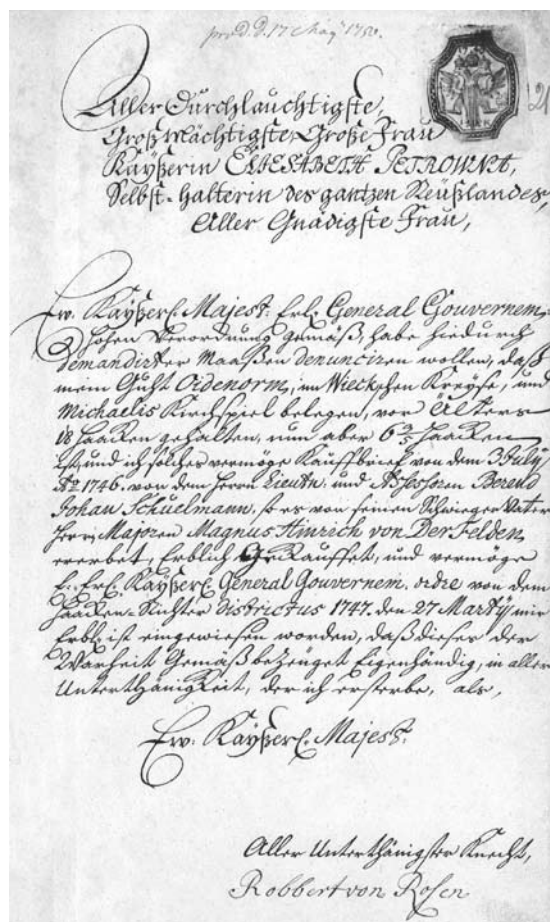 prod. d. 17 May 1750.
21
Aller Durchlauchtigste,
Großmächtigste, Große Frau
Kayßerin ELISABETH PETROWNA,
Selbst-Halterin des gantzen Reüßlandes,
Aller Gnädigste Frau,
Ew. Kayßerl. Majest: Erl. General Gouvernem.
Hohen Verordnung gemäß, habe hiedurch
demandirter Maaßen denunciren wollen, daß
mein Guht Oidenorm, im Wieckschen Kreyse, und
Michaelis Kirchspiel belegen, vor Alters
18 Haaken gehalten, nun aber 6 3/5 Haaken
ist, und ich solches vermöge Kauffbrief von dem 3 July
Aº 1746. von dem Herrn Lieutn: und Assessoren Berend
Johan Schuelmann, so er von seinen Schwieger Vater
Herrn Majoren Magnus Hinrich von Der Felden,
ererbet, Erblich Gekauffet, und vermöge
Er. Erl. Kayßerl. General Gouvernem. ordre von dem
Haaken-Richter districtus 1747. den 27 Marty, mir
Erbl. ist eingewiesen worden, daß dieses der
Warheit Gemäß bezeüget Eigenhändig, in aller
Unterthänigkeit, der ich ersterbe, als,
Ew. Kayßerl. Majest.
Aller Unterthänigster Knecht,
Robbert von Rosen